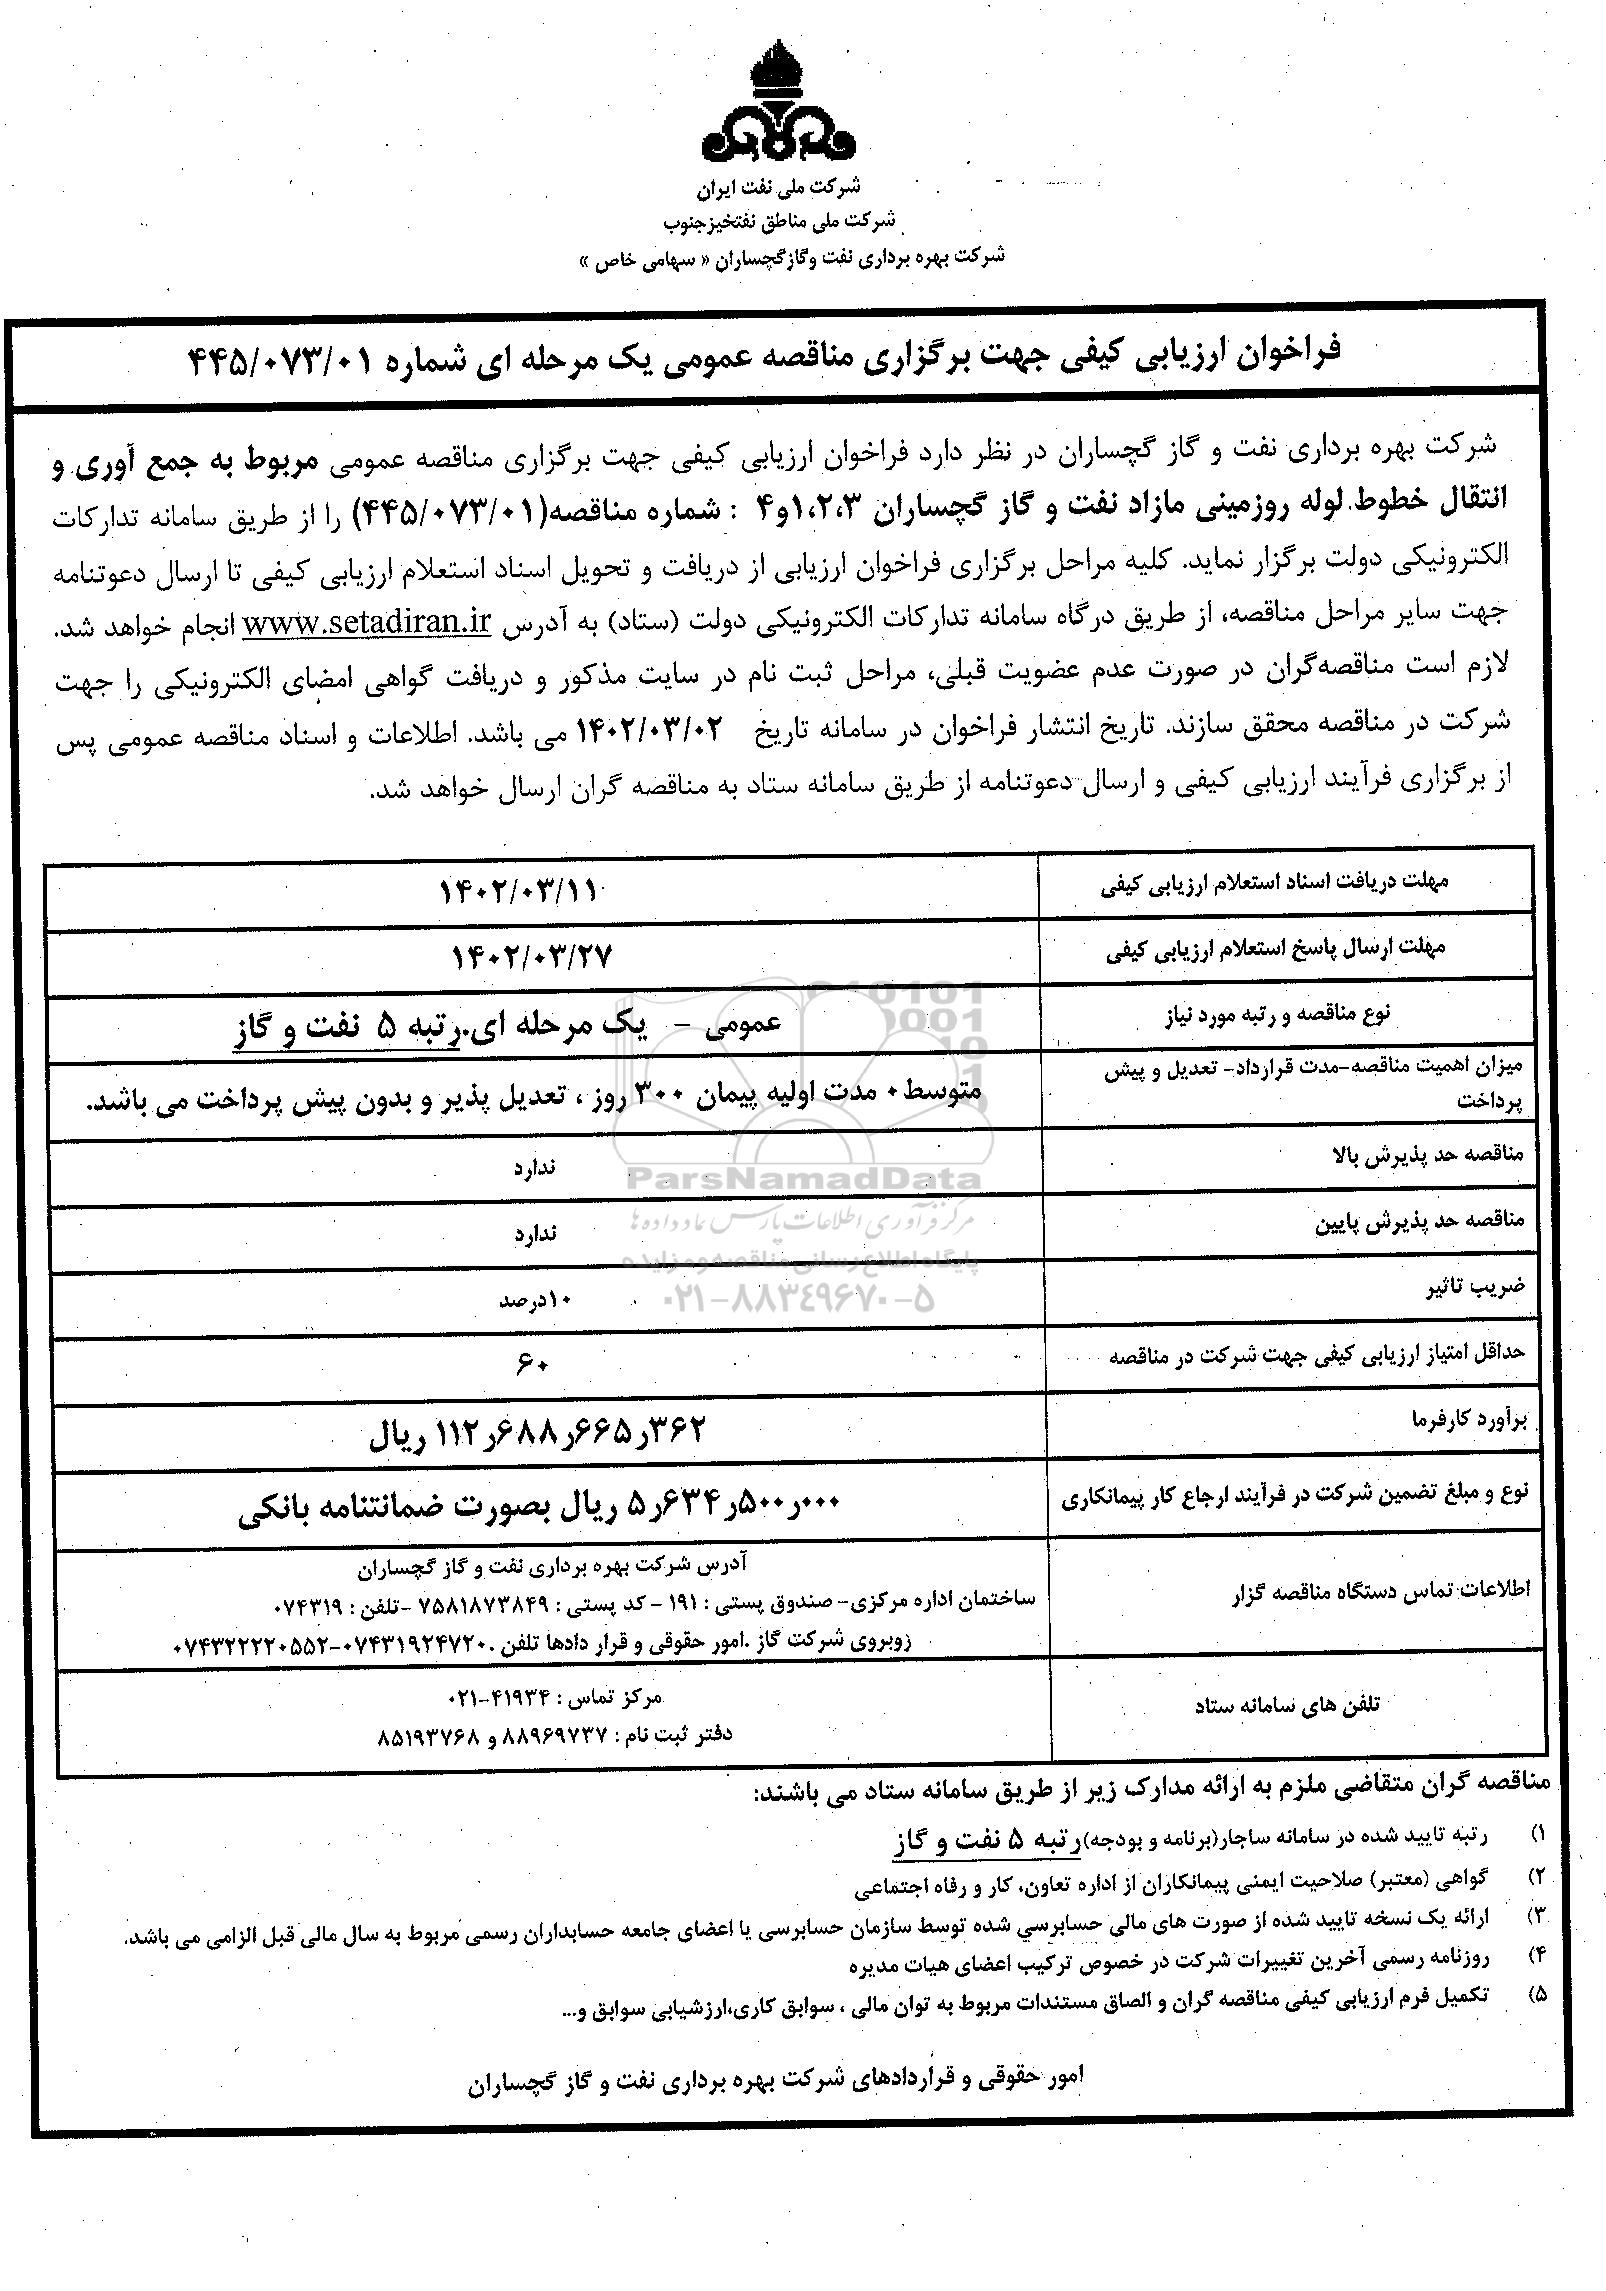 شرکت ملی نفت ایران
شرکت ملی مناطق نفتخیزجنوب
شرکت بهره برداری نفت وگازگچساران « سهامی خاص »
فراخوان ارزیابی کیفی جهت برگزاری مناقصه عمومی یک مرحله ای شماره ۴۴۵/۰۷۳/۰۱
شرکت بهره برداری نفت و گاز گچساران در نظر دارد فراخوان ارزیابی کیفی جهت برگزاری مناقصه عمومی مربوط به جمع آوری و
انتقال خطوط لوله روزمینی مازاد نفت و گاز گچساران ۱،۲،۳و۴ : شماره مناقصه(۴۴۵/۰۷۳/۰۱) را از طریق سامانه تدارکات
الکترونیکی دولت برگزار نماید. کلیه مراحل برگزاری فراخوان ارزیابی از دریافت و تحویل اسناد استعلام ارزیابی کیفی تا ارسال دعوتنامه
جهت سایر مراحل مناقصه، از طریق درگاه سامانه تدارکات الکترونیکی دولت (ستاد) به آدرس www.setadiran.ir انجام خواهد شد.
لازم است مناقصه‌گران در صورت عدم عضویت قبلی، مراحل ثبت نام در سایت مذکور و دریافت گواهی امضای الکترونیکی را جهت
شرکت در مناقصه محقق سازند. تاریخ انتشار فراخوان در سامانه تاریخ ۱۴۰۲/۰۳/۰۲ می باشد. اطلاعات و اسناد مناقصه عمومی پس
از برگزاری فرآیند ارزیابی کیفی و ارسال دعوتنامه از طریق سامانه ستاد به مناقصه گران ارسال خواهد شد.
مهلت دریافت اسناد استعلام ارزیابی کیفی ۱۴۰۲/۰۳/۱۱
مهلت ارسال پاسخ استعلام ارزیابی کیفی ۱۴۰۲/۰۳/۲۷
نوع مناقصه و رتبه مورد نیاز عمومی - یک مرحله ای.رتبه ۵ نفت و گاز
میزان اهمیت مناقصه-مدت قرارداد- تعدیل و پیش
پرداخت
متوسط۰ مدت اولیه پیمان ۳۰۰ روز ، تعدیل پذیر و بدون پیش پرداخت می باشد.
مناقصه حد پذیرش بالا ندارد
مناقصه حد پذیرش پایین ندارد
ضریب تاثیر ۱۰درصد
حداقل امتیاز ارزیابی کیفی جهت شرکت در مناقصه ۶۰
برآورد کارفرما ۱۱۲ر۶۸۸ر۶۶۵ر۳۶۲ ریال
نوع و مبلغ تضمین شرکت در فرآیند ارجاع کار پیمانکاری ۵ر۶۳۴ر۵۰۰ر۰۰۰ ریال بصورت ضمانتنامه بانکی
اطلاعات تماس دستگاه مناقصه گزار
آدرس شرکت بهره برداری نفت و گاز گچساران
ساختمان اداره مرکزی- صندوق پستی : ۱۹۱ - کد پستی : ۷۵۸۱۸۷۳۸۴۹ -تلفن : ۰۷۴۳۱۹
روبروی شرکت گاز .امور حقوقی و قرار دادها تلفن .۰۷۴۳۱۹۲۴۷۲۰-۰۷۴۳۲۲۲۲۰۵۵۲
تلفن های سامانه ستاد
مرکز تماس : ۴۱۹۳۴-۰۲۱
دفتر ثبت نام : ۸۸۹۶۹۷۳۷ و ۸۵۱۹۳۷۶۸
مناقصه گران متقاضی ملزم به ارائه مدارک زیر از طریق سامانه ستاد می باشند:
۱) رتبه تایید شده در سامانه ساجار(برنامه و بودجه)رتبه ۵ نفت و گاز
۲) گواهی (معتبر) صلاحیت ایمنی پیمانکاران از اداره تعاون، کار و رفاه اجتماعی
۳) ارائه یک نسخه تایید شده از صورت های مالی حسابرسی شده توسط سازمان حسابرسی یا اعضای جامعه حسابداران رسمی مربوط به سال مالی قبل الزامی می باشد.
۴) روزنامه رسمی آخرین تغییرات شرکت در خصوص ترکیب اعضای هیات مدیره
۵) تکمیل فرم ارزیابی کیفی مناقصه گران و الصاق مستندات مربوط به توان مالی ، سوابق کاری،ارزشیابی سوابق و...
امور حقوقی و قراردادهای شرکت بهره برداری نفت و گاز گچساران
ParsNamadData
مرکز فرآوری اطلاعات پارس نماد داده ها
پایگاه اطلاع رسانی مناقصه و مزایده
۰۲۱-۸۸۳۴۹۶۷۰-۵